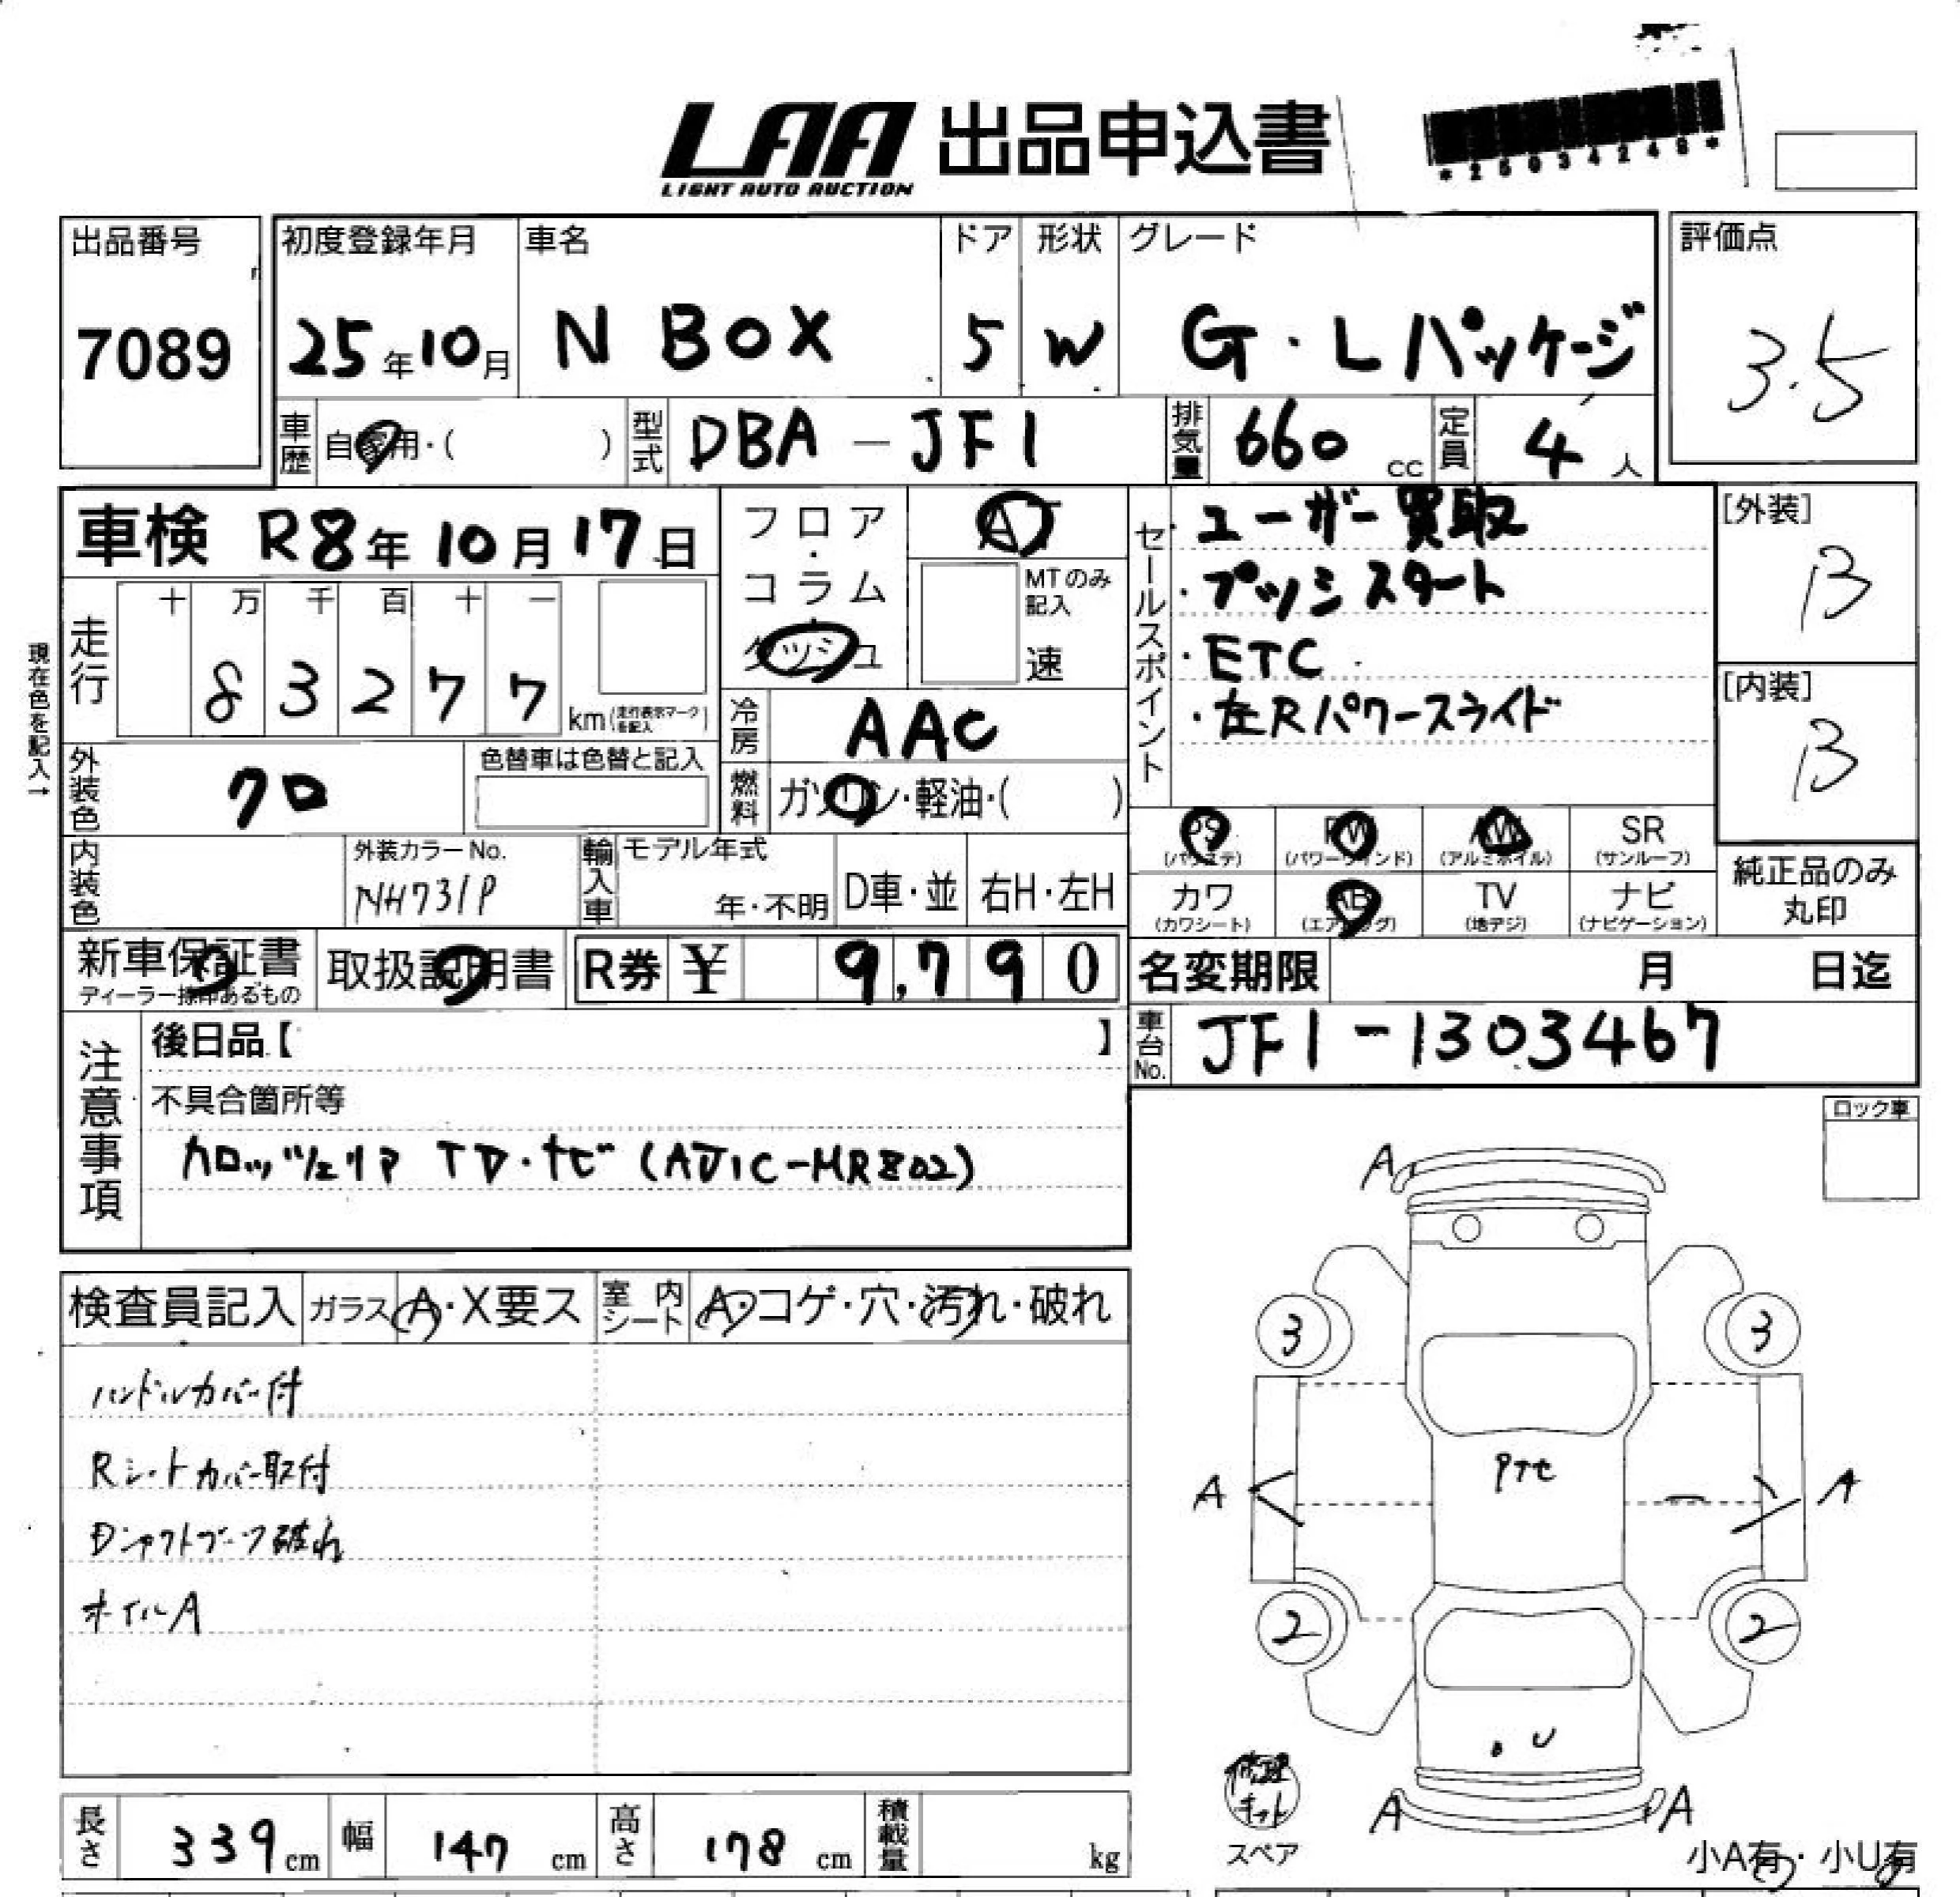 LAA 出品申込書
LIGHT AUTO AUCTION
*25034248*
出品番号
7089
初度登録年月
25年10月
車名
N BOX
ドア
5
形状
W
グレード
G・Lパッケージ
評価点
3.5
車歴
自家用・( )
型式
DBA-JF1
排気量
660 cc
定員
4 人
車検 R8年10月17日
フロア・コラム・ダッシュ
AT
MTのみ記入
速
セールスポイント
・ユーザー買取
・プッシスタート
・ETC
・左Rパワースライド
[外装]
B
[内装]
B
現在色を記入→
走行
十 万 千 百 十 一
8 3 2 7 7
km(走行表示マークを記入)
冷房
AAC
外装色
クロ
色替車は色替と記入
燃料
ガソリン・軽油・( )
内装色
外装カラーNo.
NH731P
輸入車
モデル年式
年・不明
D車・並
右H・左H
PS
(パワステ)
PW
(パワーウィンド)
AW
(アルミホイル)
SR
(サンルーフ)
カワ
(カワシート)
AB
(エアバッグ)
TV
(地デジ)
ナビ
(ナビゲーション)
純正品のみ
丸印
新車保証書
ディーラー捺印あるもの
取扱説明書
R券 ¥ 9,790
名変期限 月 日迄
車台No.
JF1-1303467
注意事項
後日品【 】
不具合箇所等
カロッツェリア TV・ナビ (AVIC-MR802)
ロック車
検査員記入
ガラス A・X要ス
室内シート A・コゲ・穴・汚れ・破れ
ハンドルカバー付
Rシートカバー取付
Dシャフトブーツ破れ
ホイルA
A
3 3
Pテヒ
A A
2 2
・U
A A
修理キット
スペア
小A有・小U有
長さ
339 cm
幅
147 cm
高さ
178 cm
積載量
kg